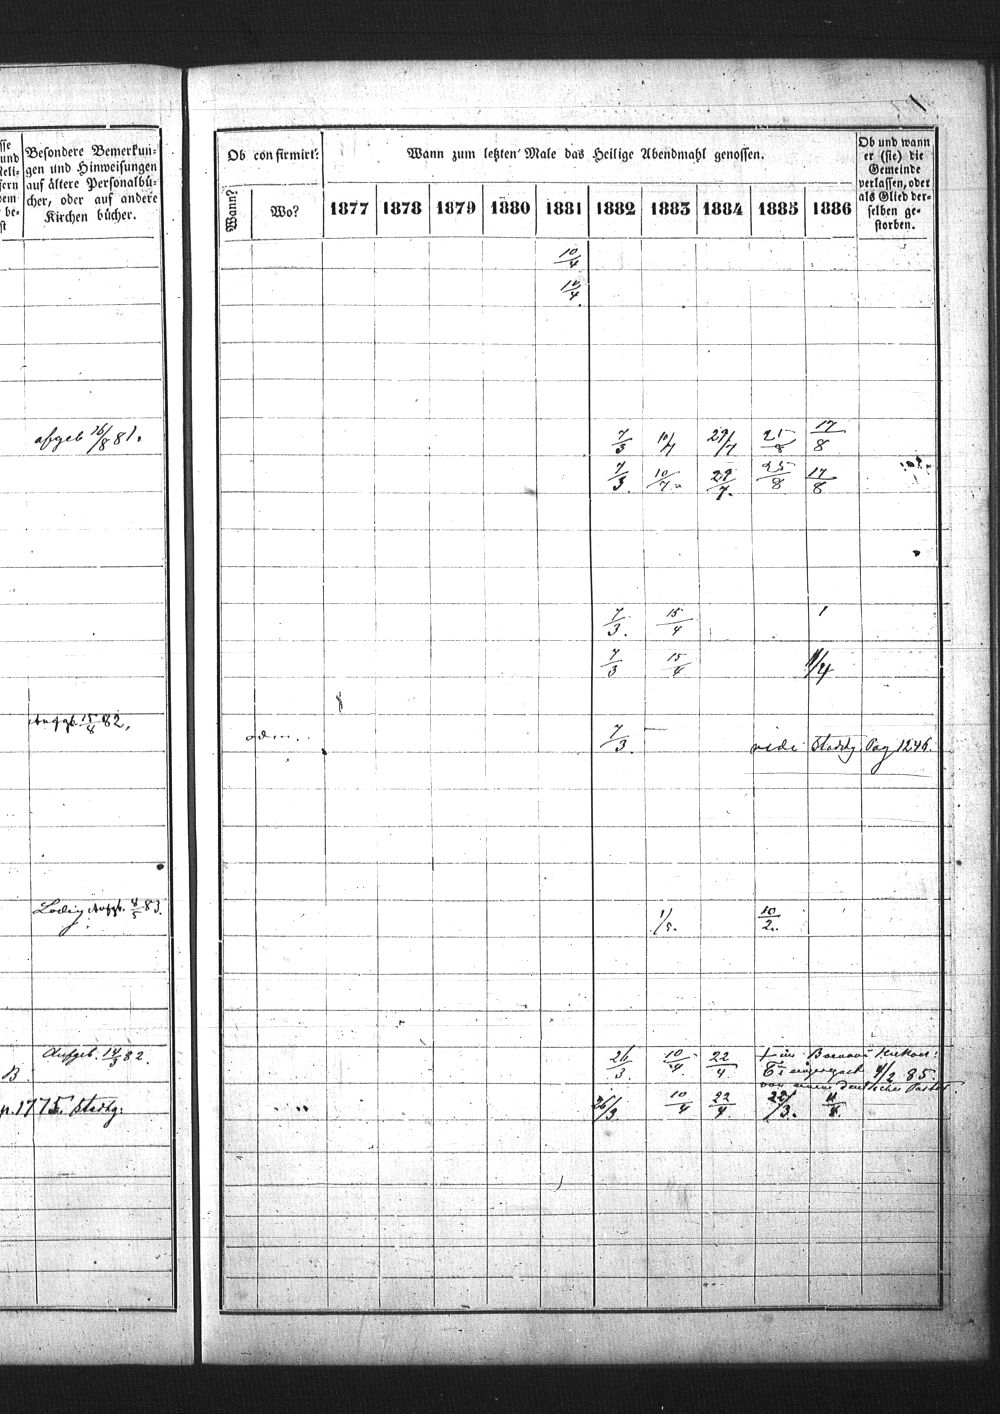 sse
und
Reli-
fern
dem
be-
st
Besondere Bemerkun-
gen und Hinweisungen
auf ältere Personalbü-
cher, oder auf andere
Kirchen bücher.
Ob confirmirt:
Wann zum letzten Male das Heilige Abendmahl genossen.
Ob und wann
er (sie) die
Gemeinde
verlassen, oder
als Glied der-
selben ge-
storben.
Wann?
Wo?
1877 1878 1879 1880 1881 1882 1883 1884 1885 1886
10/4
10/4
afgeb 16/8 81.
7/3 10/7 29/7 25/8 17/8
7/3. 10/7. 29/7. 25/8 17/8
7/3. 15/4
7/3 15/4 11/4
Aufgb. 15/8 82.
7/3. vide Stadtg Pag 1246.
Aufgb. 4/5 83.
1/5. 10/2.
Aufgeb. 14/3 82.
26/3. 10/4. 22/4
B.
4/2 85.
von einem deutschen Pastor
p. 1775. Stadtg:
26/3 10/4 22/4 22/3. 11/8.